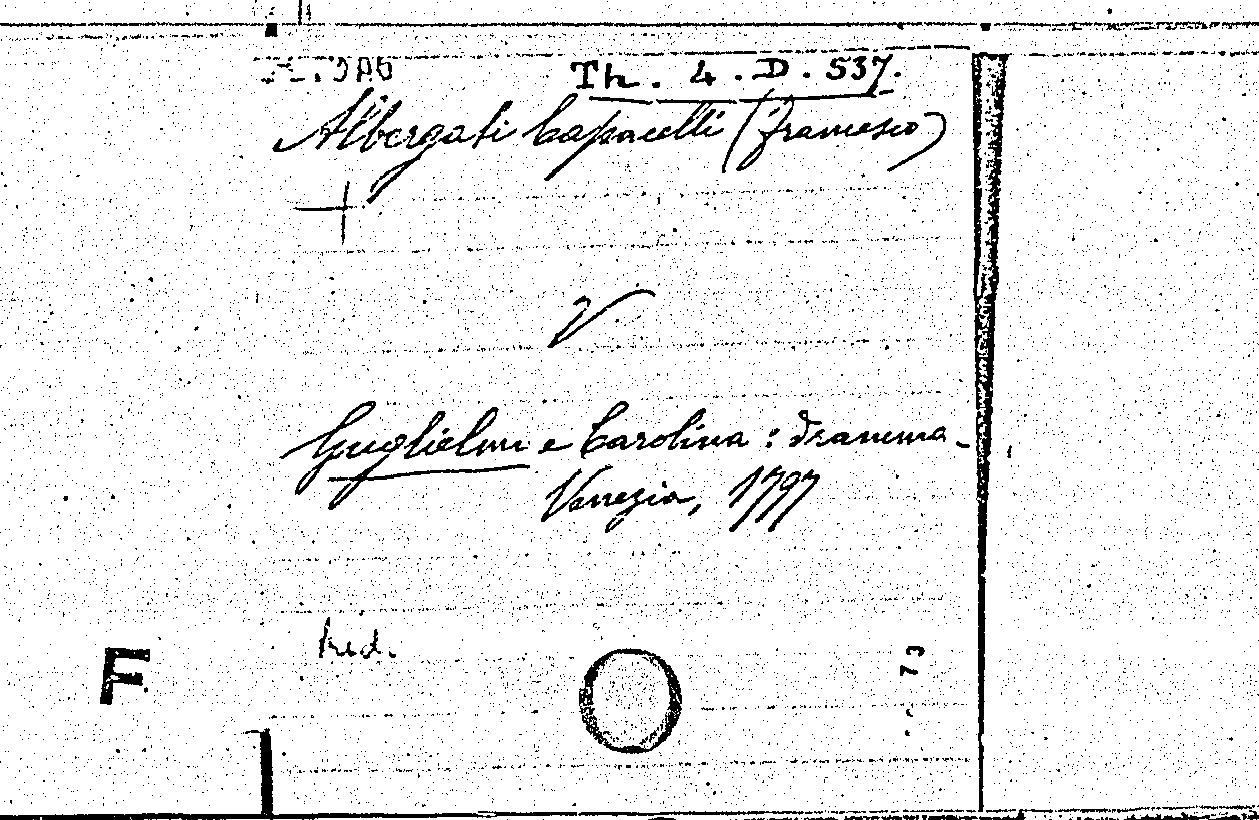 Th. 4. D. 537.
Albergati Capacelli (Francesco)
V
Guglielmi e Carolina : dramma -
Venezia, 1797
F